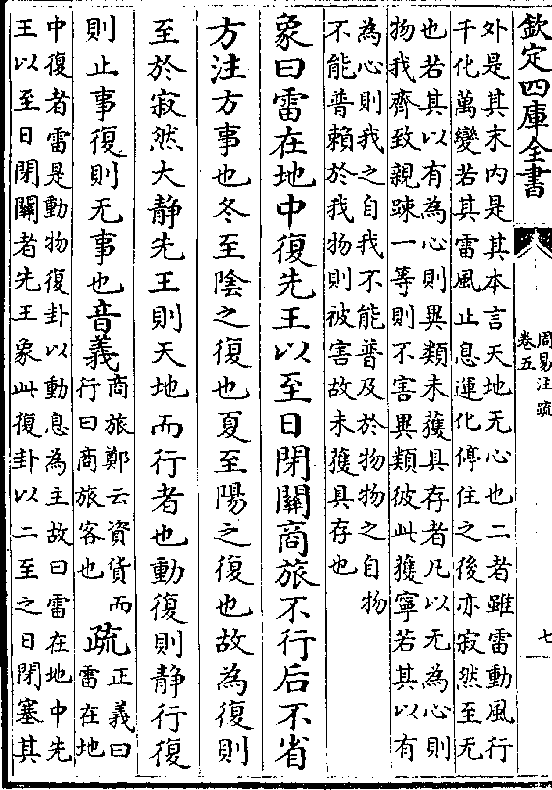 欽定四庫全書
周易注疏
卷五
七
外是其末内是其本言天地无心也二者雖雷動風行
千化萬變若其雷風止息運化停住之後亦寂然至无
也若其以有為心則異類未獲具存者凡以无為心則
物我齊致親踈一等則不害異類彼此獲寧若其以有
為心則我之自我不能普及於物物之自物
不能普賴於我物則被害故未獲具存也
象曰雷在地中復先王以至日閉關商旅不行后不省
方注方事也冬至陰之復也夏至陽之復也故為復則
至於寂然大静先王則天地而行者也動復則静行復
則止事復則无事也音義商旅鄭云資貨而
行曰商旅客也疏正義曰
雷在地
中復者雷是動物復卦以動息為主故曰雷在地中先
王以至日閉關者先王象此復卦以二至之日閉塞其